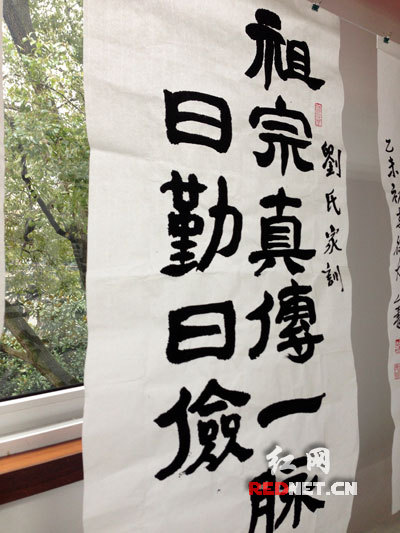 乙未
劉氏家訓
祖宗真傳一脈
曰勤曰儉
红网
REDNET.CN